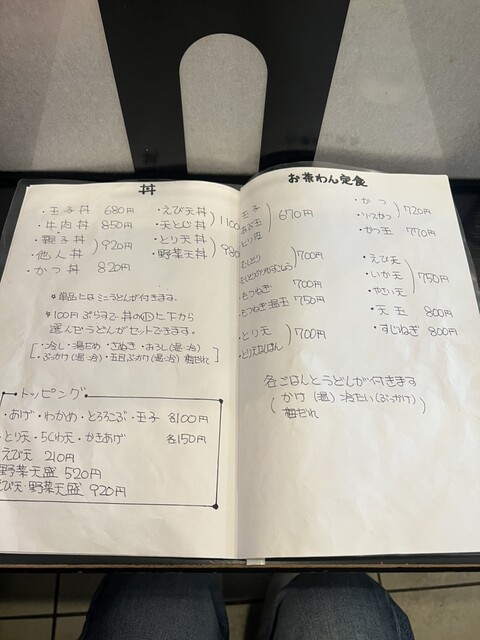 丼
・玉子丼 680円
・牛肉丼 850円
・親子丼
・他人丼 ) 920円
・かつ丼 820円
・えび天丼
・天とじ丼 ) 1100
・とり天丼
・野菜天丼 ) 980
単品にはミニうどんが付きます。
100円ぷらすで丼の㊤に下から
選んでうどんがセットできます。
・冷し・湯だめ・きぬき・おろし(温・冷)
・ぶっかけ(温・冷)・五目ぶっかけ(温・冷) 梅だれ
トッピング
・あげ・わかめ・とろろこぶ・玉子 各100円
・とり天・ちくわ天・かきあげ 各150円
えび天 210円
野菜天盛 520円
えび天・野菜天盛 920円
お茶わん定食
玉子
670円
700円
もつねぎ 700円
もつねぎ温玉 750円
・とり天
・とり天なんばん ) 700円
・かつ
720円
・かつ玉 770円
・えび天
・いか天
・やさい天 ) 750円
・天玉 800円
・すじねぎ 800円
各ごはんとうどんが付きます
(かけ(温) 冷たい(ぶっかけ)
梅だれ )